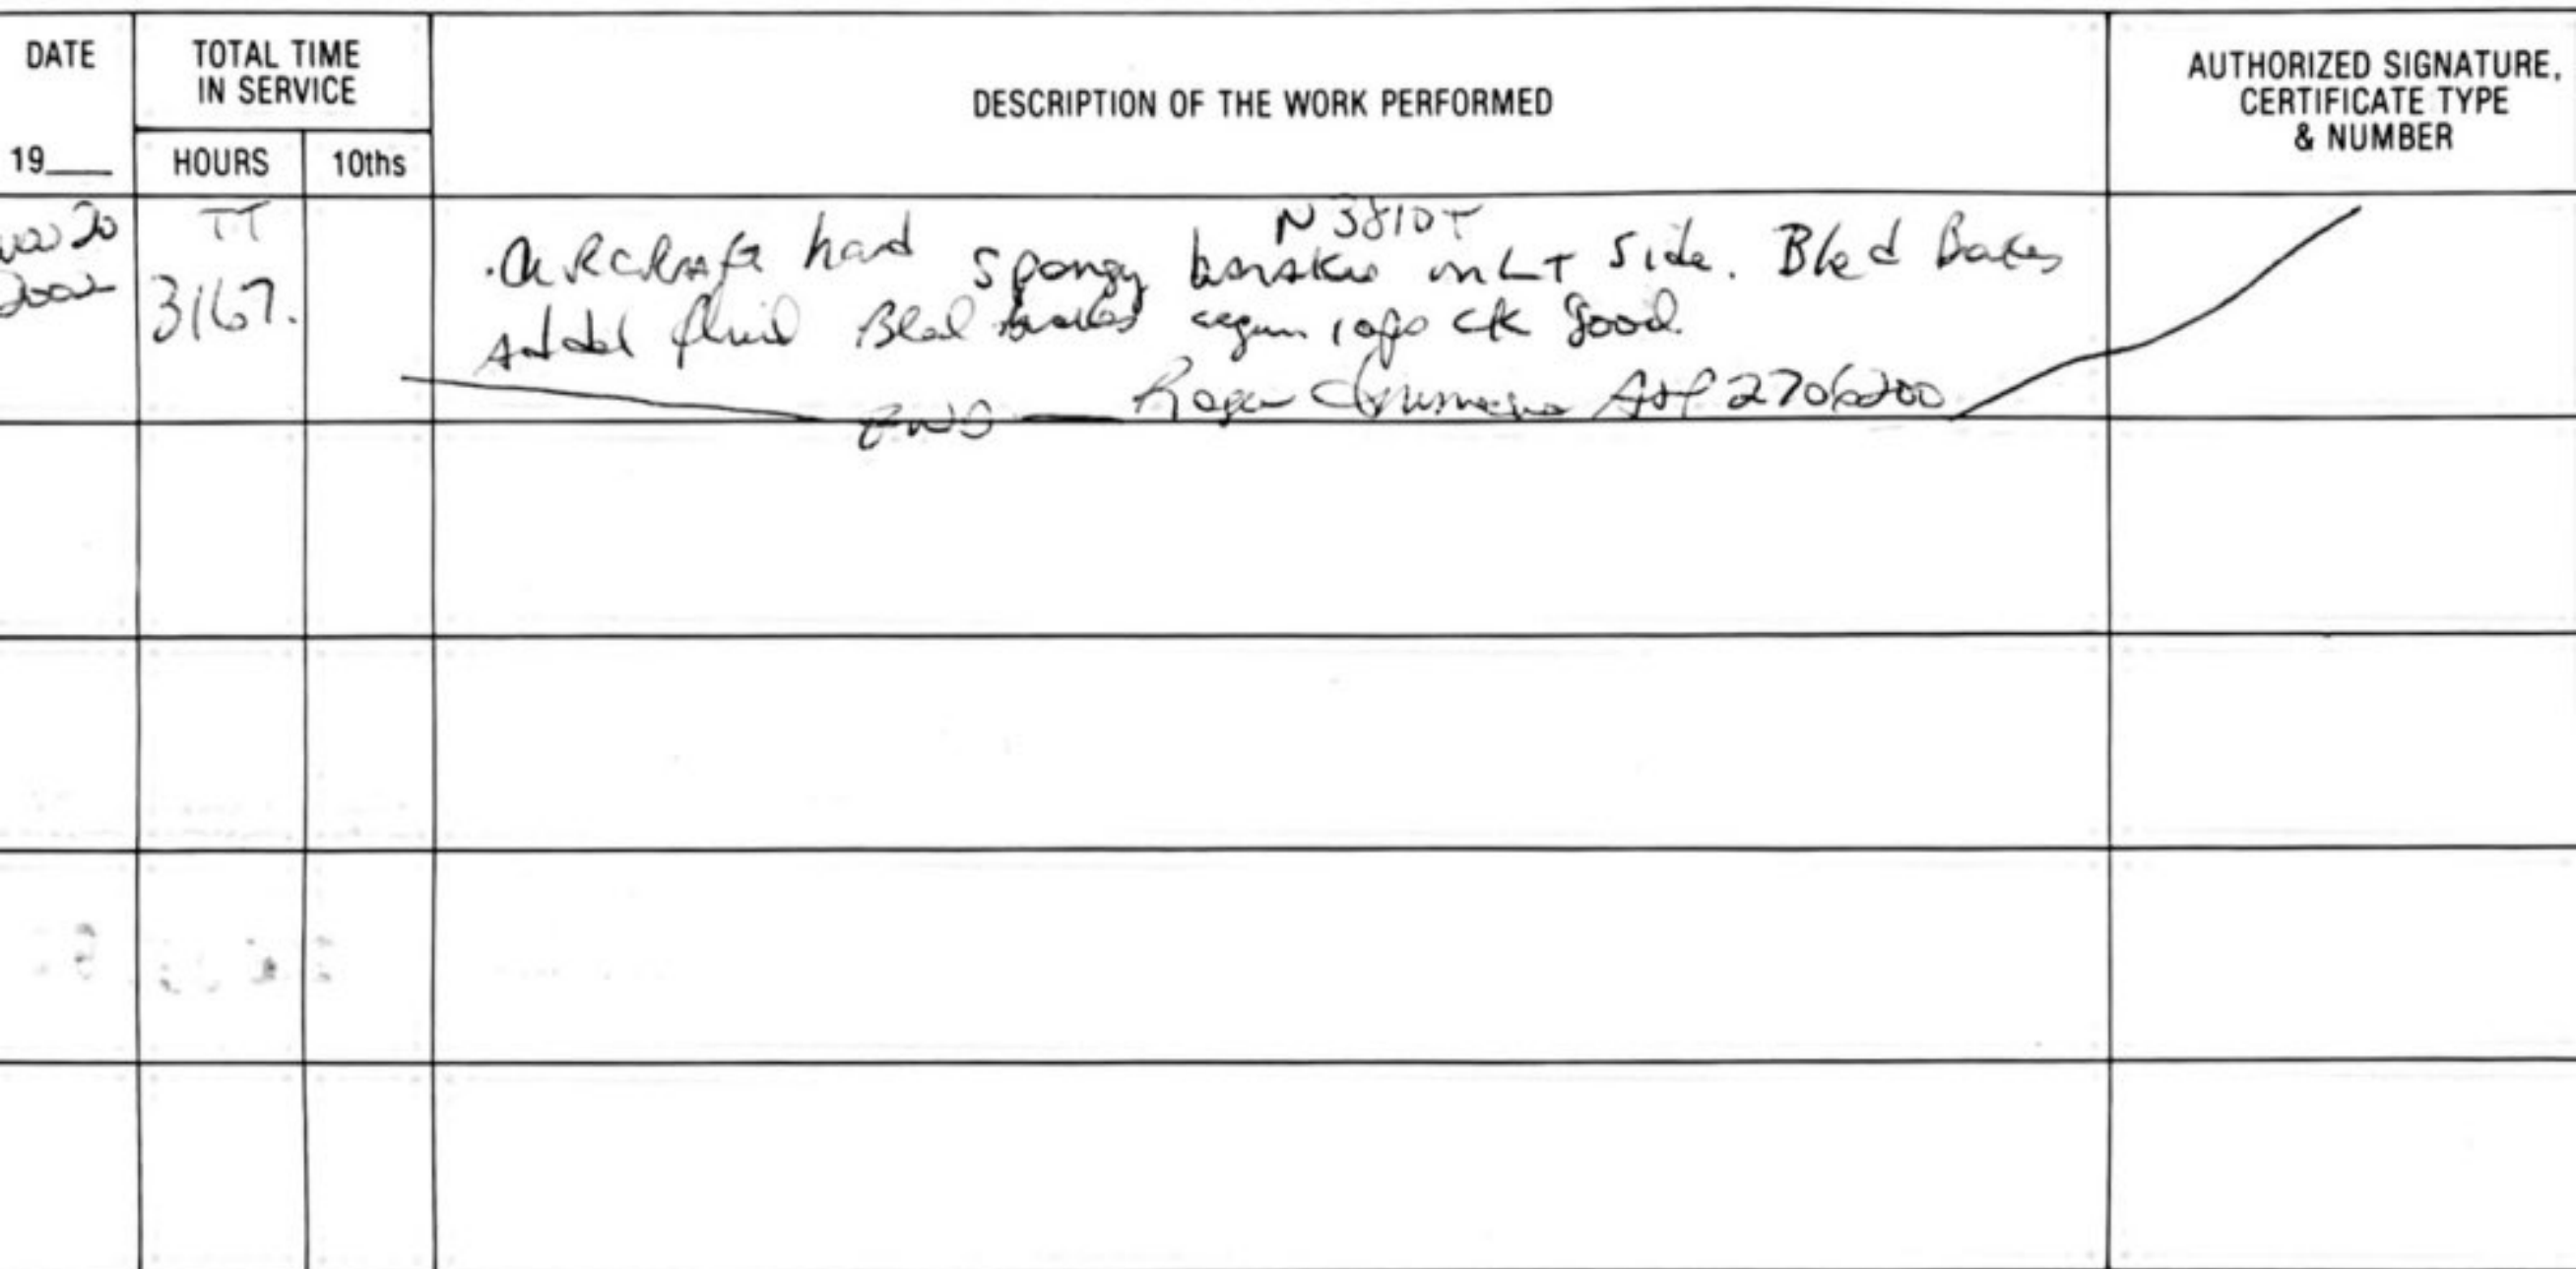 DATE
19___
TOTAL TIME
IN SERVICE
HOURS
10ths
DESCRIPTION OF THE WORK PERFORMED
AUTHORIZED SIGNATURE,
CERTIFICATE TYPE
& NUMBER
20
2002
TT
3167.
N3810T
Aircraft had spongy brakes on LT side. Bled Bakes
Added fluid Bled brakes again ck good.
END Roger A&P 2706200